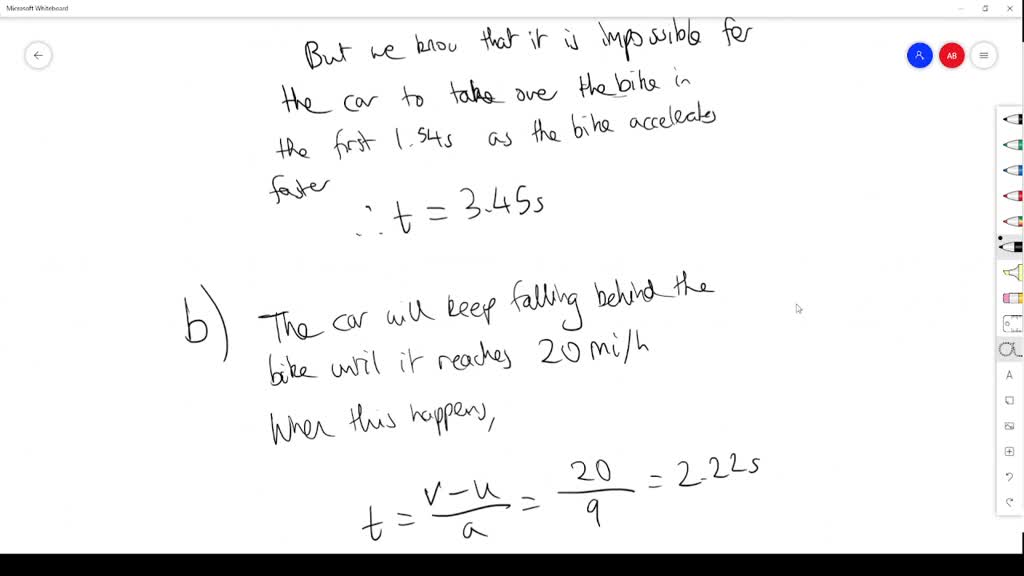 Microsoft Whiteboard
AB
But we know that it is impossible for
the car to take over the bike in
the first 1.54s as the bike accelerates
faster
∴ t = 3.45s
b) The car will keep falling behind the
bike until it reaches 20 mi/h
When this happens,
t = v-u/a = 20/9 = 2.22s